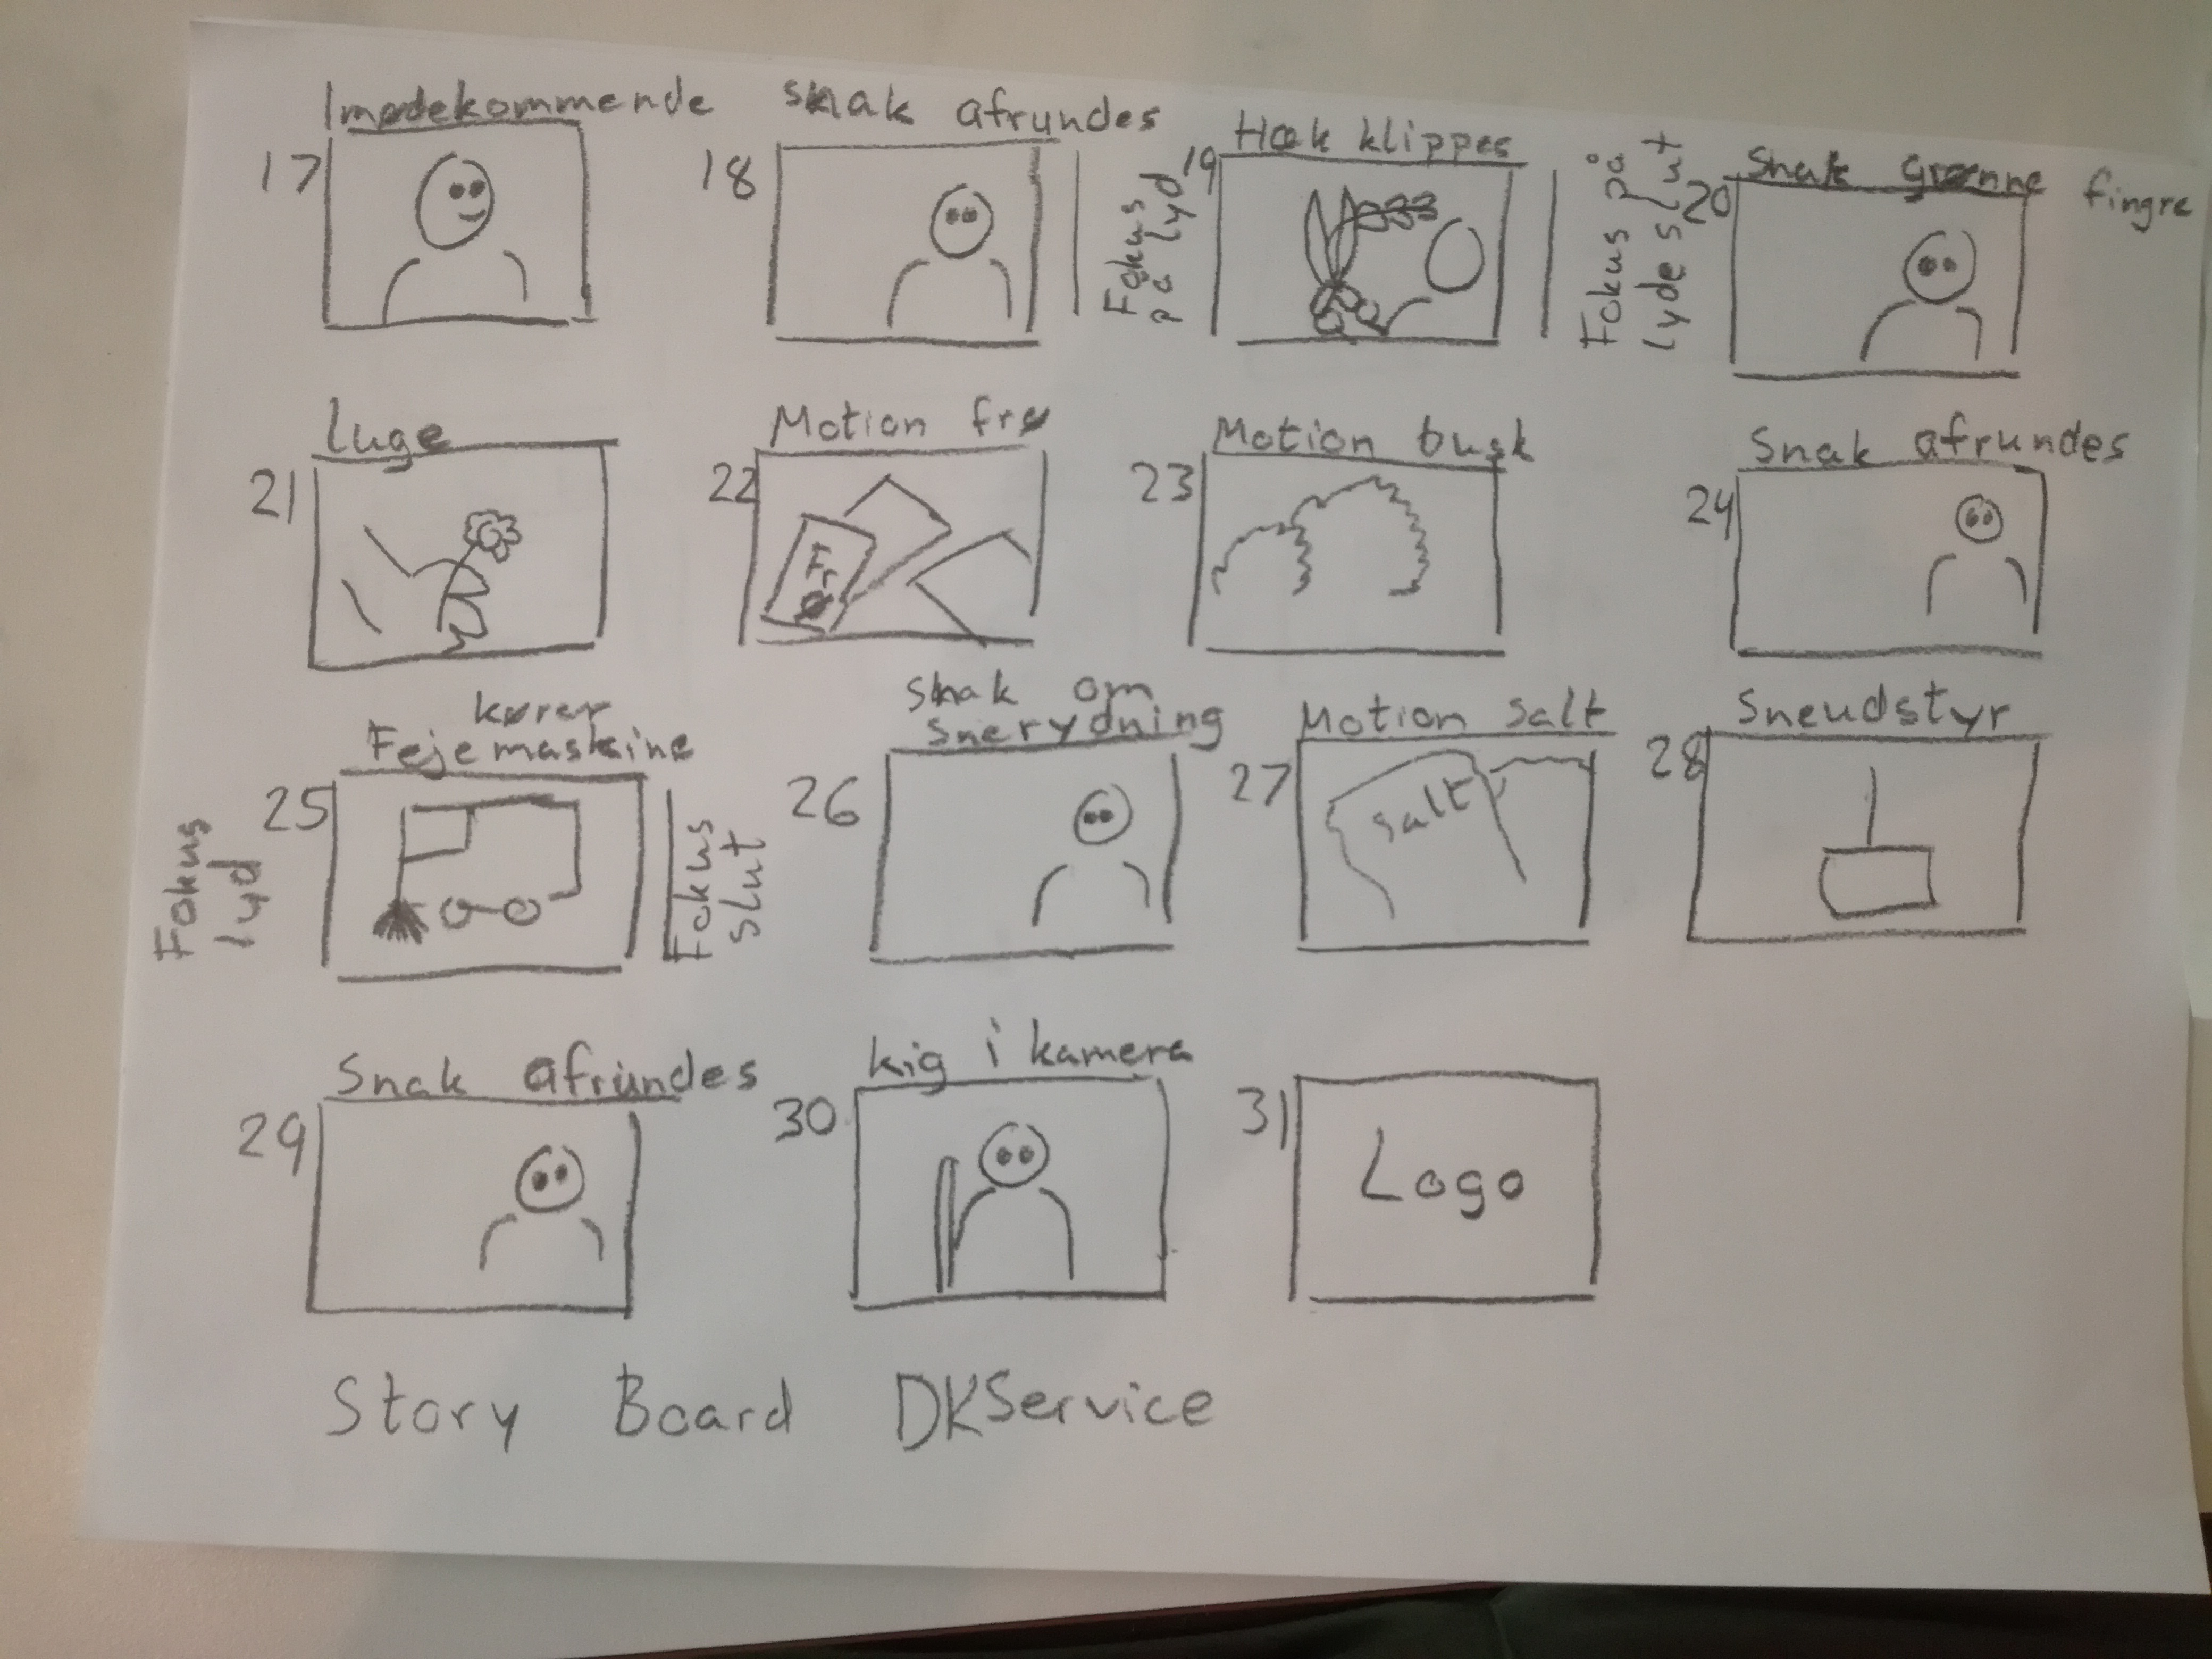 Imødekommende
17
snak afrundes
18
Fokus
på lyd
Hæk klippes
19
Fokus på
lyde slut
Snak grønne fingre
20
Luge
21
Motion frø
22
Frø
Motion busk
23
Snak afrundes
24
Fokus
lyd
kører
Fejemaskine
25
Fokus
slut
snak om
snerydning
26
Motion salt
27
salt
Sneudstyr
28
Snak afrundes
29
kig i kamera
30
31
Logo
Story Board DKService